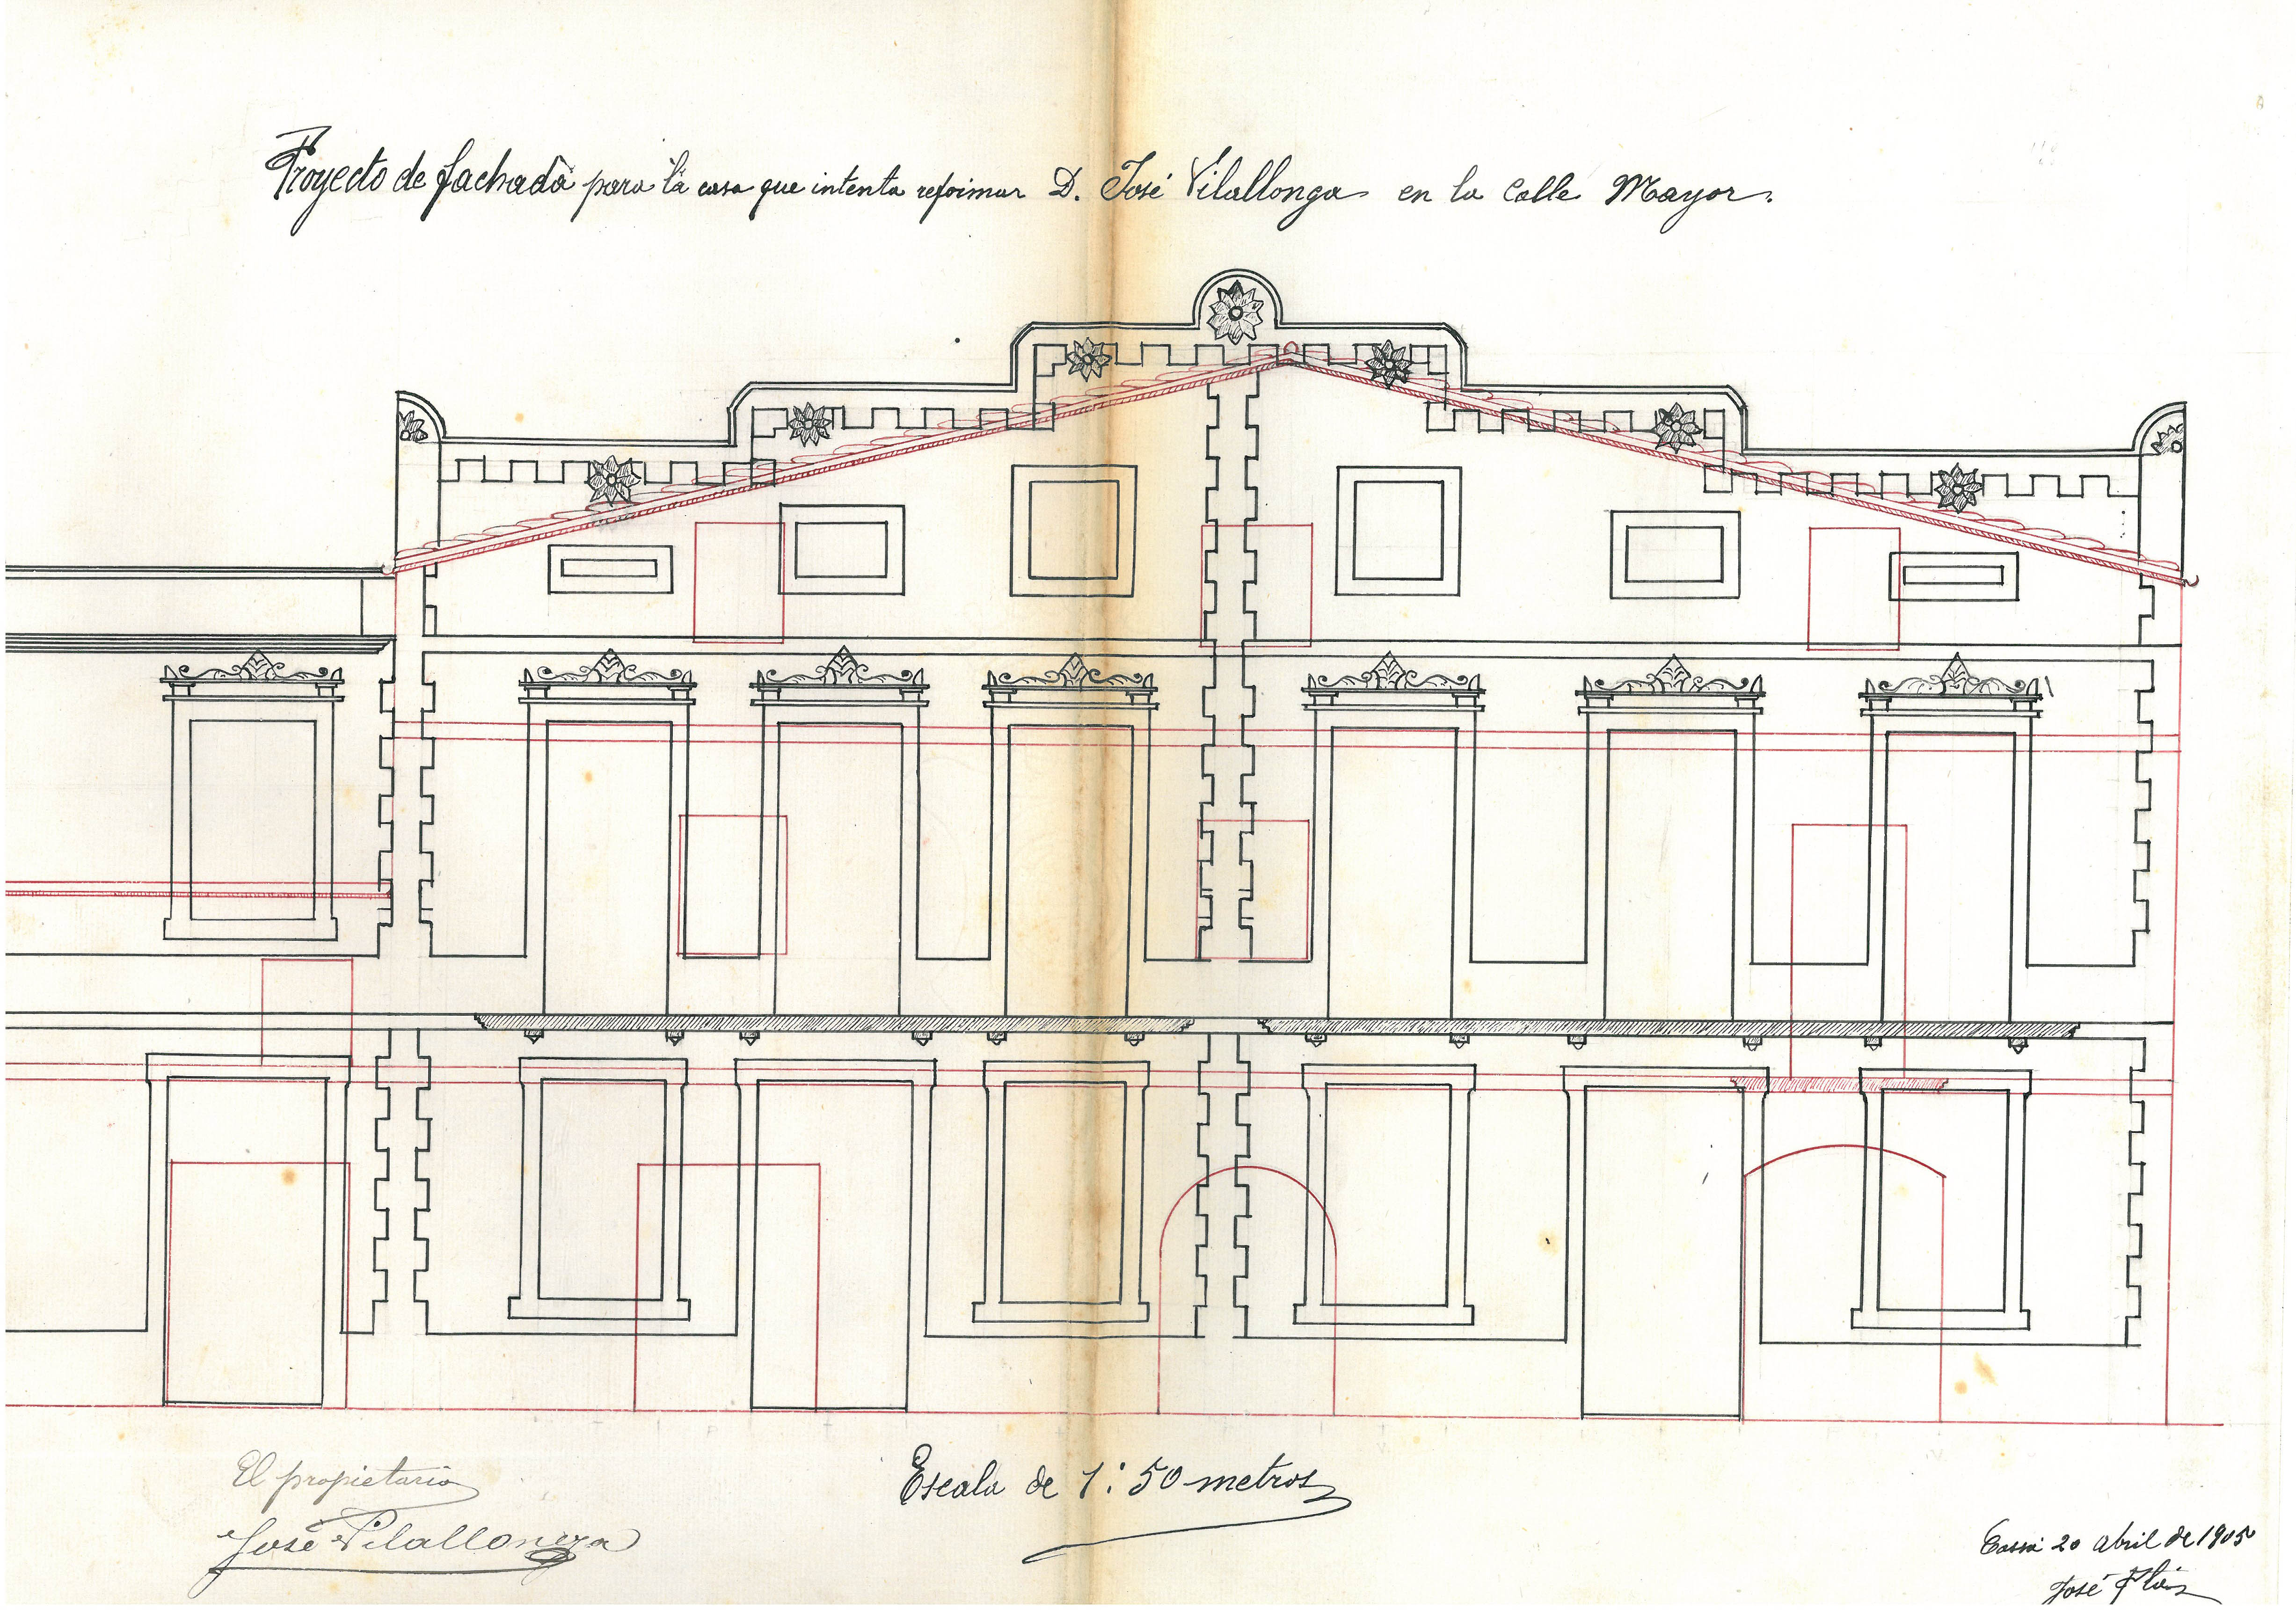 Proyecto de fachada para la casa que intenta reformar D. José Vilallonga en la Calle Mayor.
El propietario
José Vilallonga
Escala de 1:50 metros
Cassá 20 abril de 1905
José Plá